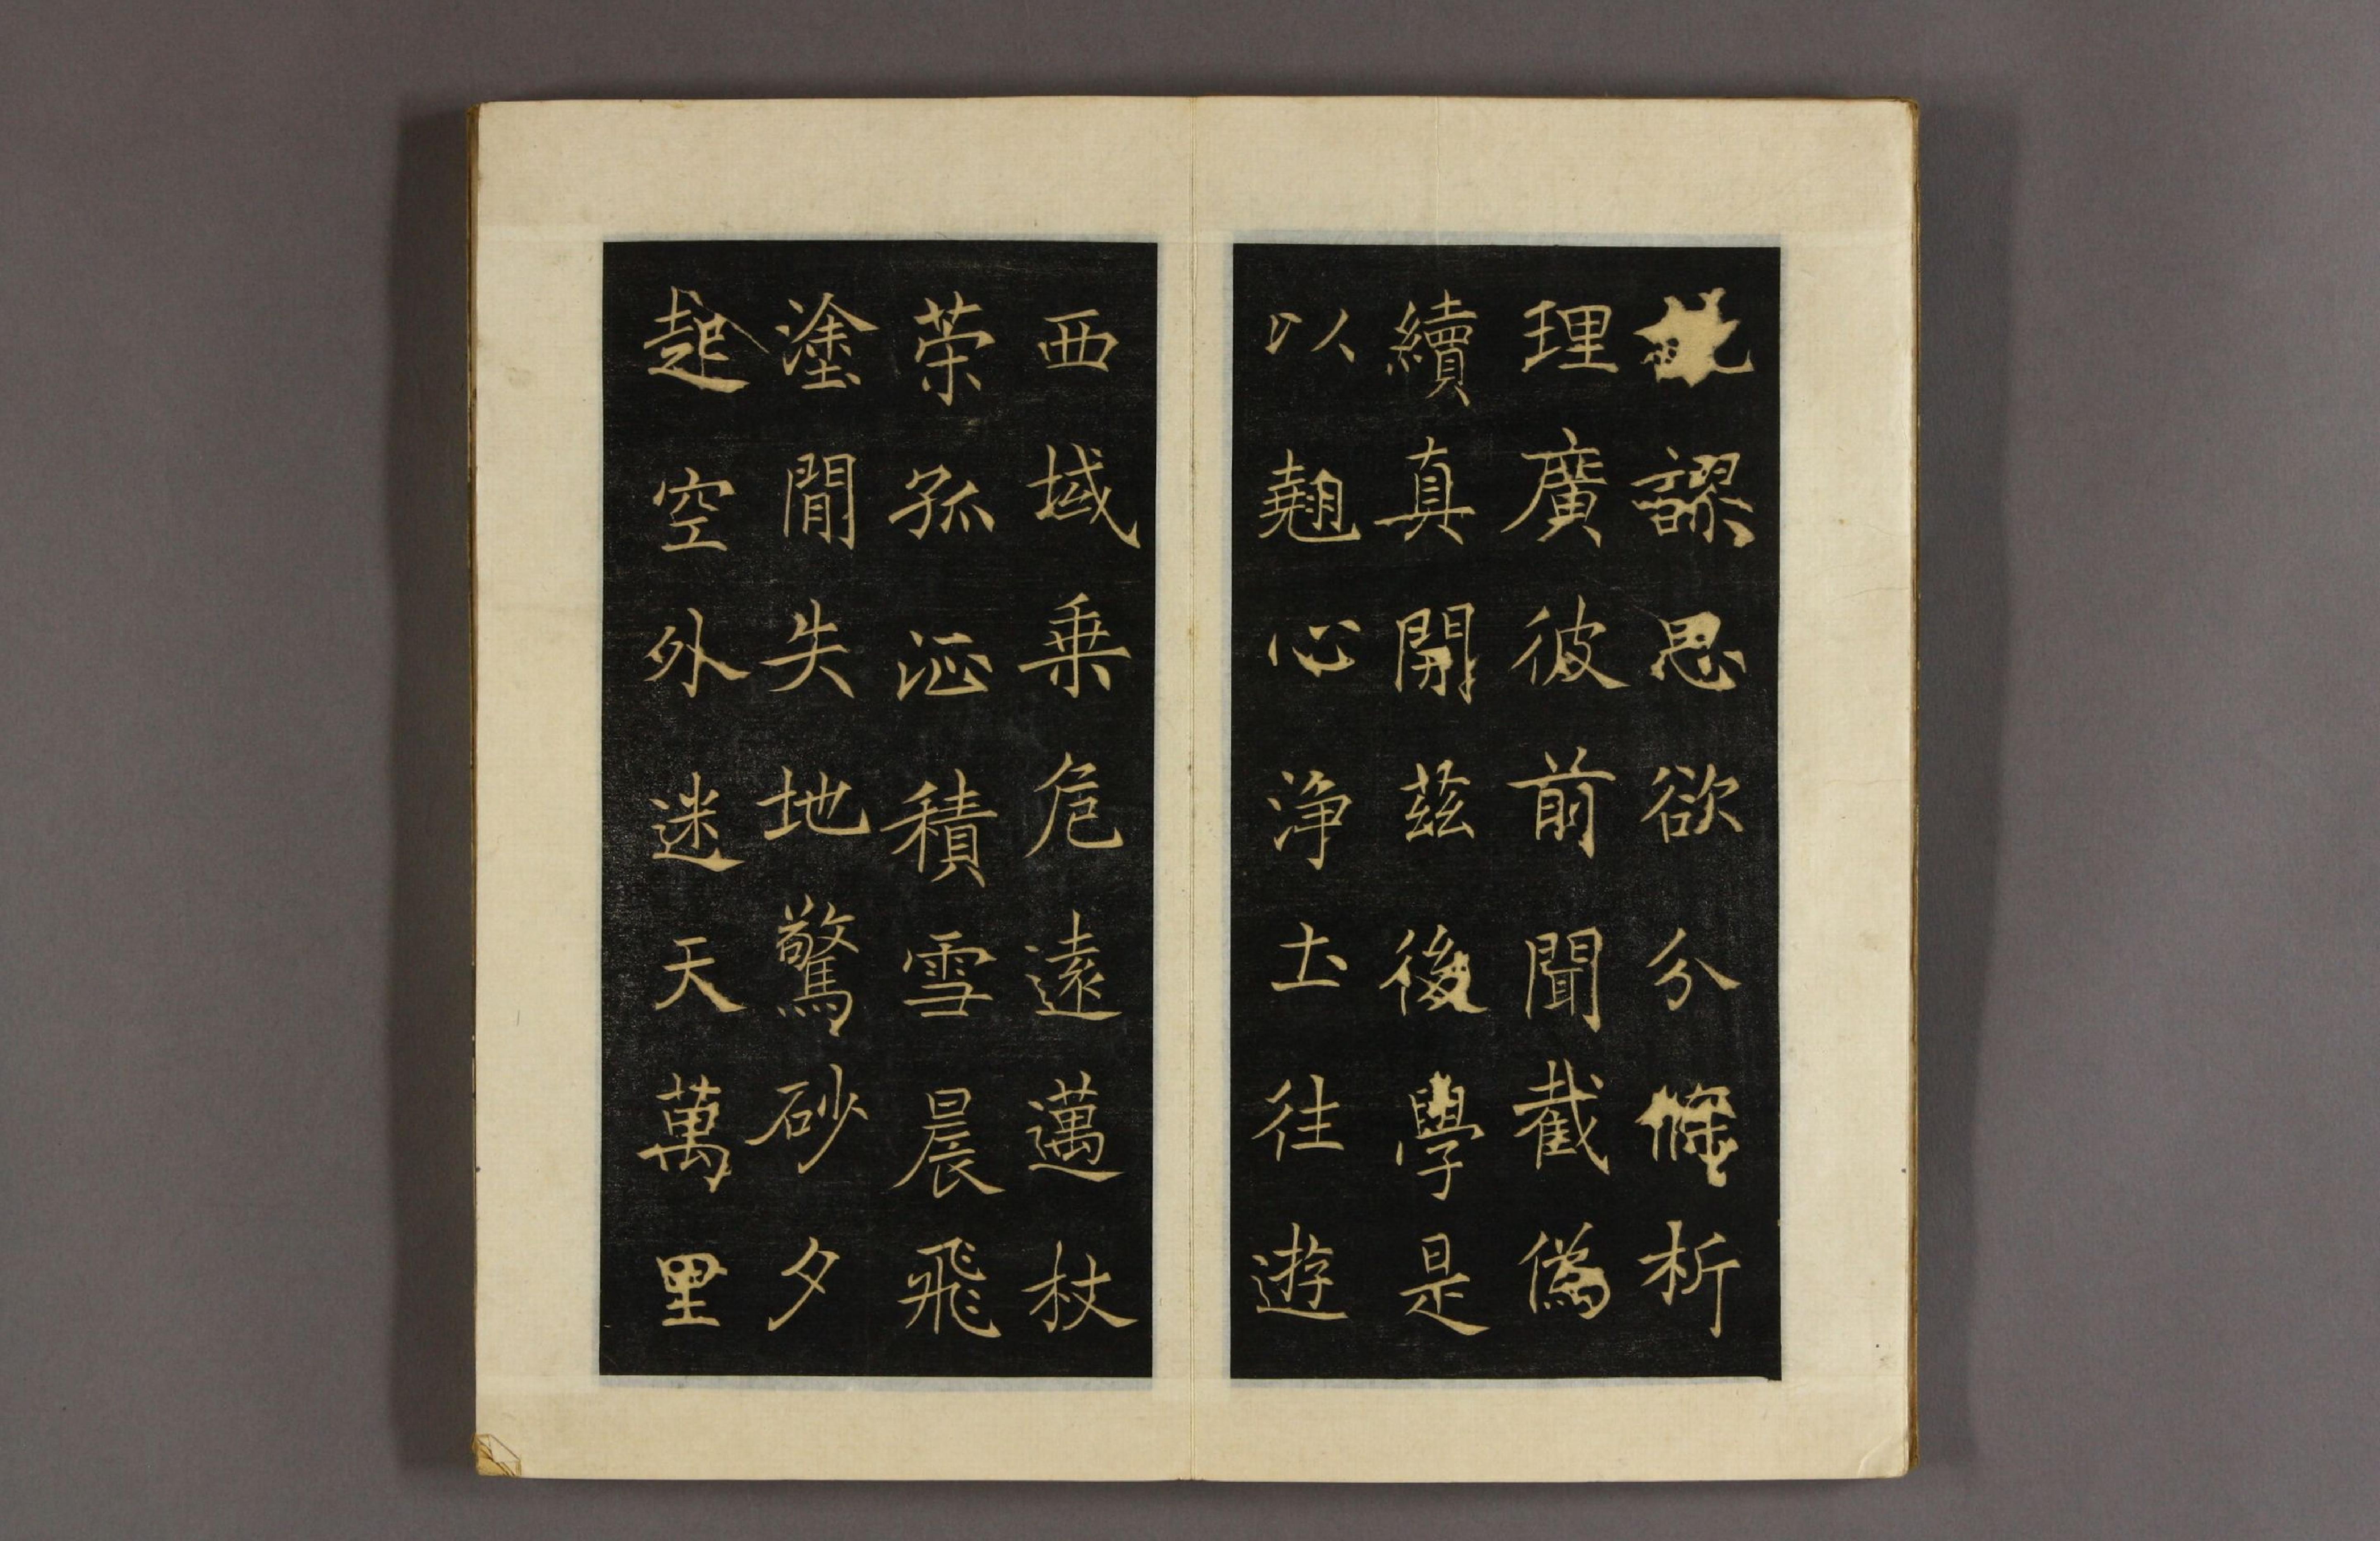 謬思欲分條析
理廣彼前聞截僞
續真開茲後學是
以翹心浄土往遊
西域乗危遠邁杖
茦孤征積雪晨飛
塗閒失地驚砂夕
起空外迷天萬里